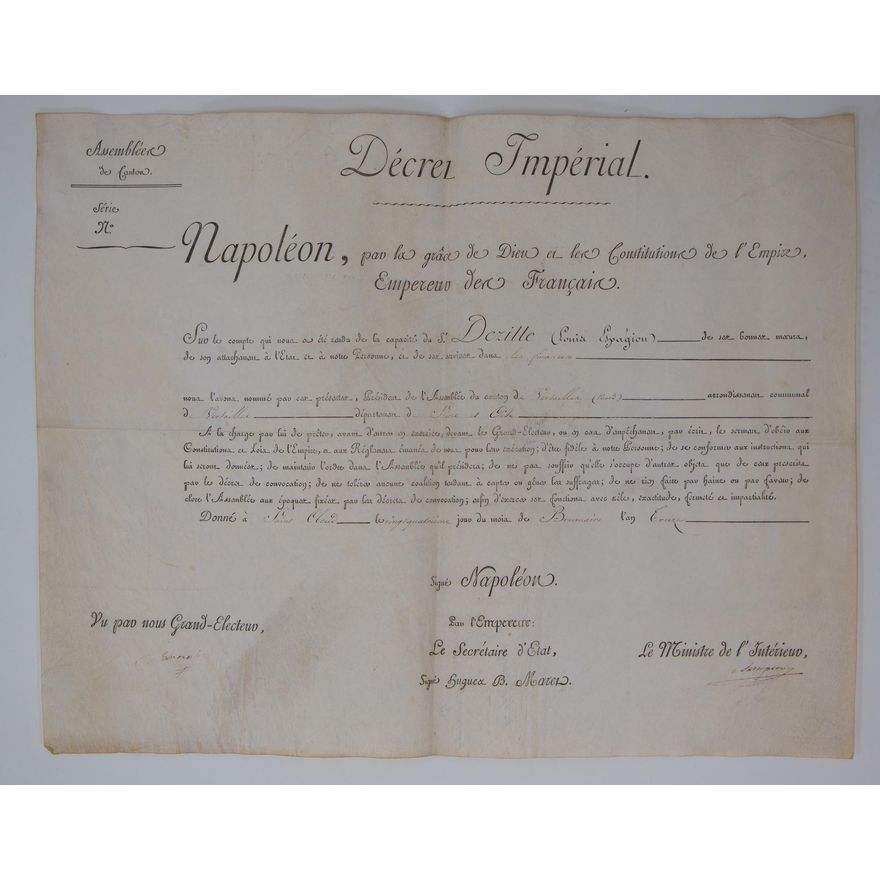 Assemblées
de Canton.
Série
N.°
Décret Impérial.
Napoléon, par la grâce de Dieu et les Constitutions de l'Empire,
Empereur des Français.
Sur le compte qui nous a été rendu de la capacité du S.r Dezille (Louis Espagion) de ses bonnes mœurs,
de son attachement à l'Etat et à notre Personne, et de ses services dans les finances
nous l'avons nommé par ces présentes, Président de l'Assemblée du canton de Versailles (Nord) arrondissement communal
de Versailles département de Seine et Oise
A la charge par lui de prêter, avant d'entrer en exercice, devant le Grand-Electeur, ou en cas d'empêchement, par écrit, le serment d'obéir aux
Constitutions et Lois de l'Empire, et aux Réglemens émanés de nous pour leur exécution; d'être fidèle à notre Personne; de se conformer aux instructions qui
lui seront données; de maintenir l'ordre dans l'Assemblée qu'il présidera; de ne pas souffrir qu'elle s'occupe d'autres objets que de ceux prescrits
par le décret de convocation; de ne tolérer aucune coalition tendant à capter ou gêner les suffrages; de ne rien faire par haine ou par faveur; de
clore l'Assemblée aux époques fixées par les décrets de convocation; enfin d'exercer ses fonctions avec zèle, exactitude, fermeté et impartialité.
Donné à Saint Cloud le vingt quatrième jour du mois de Brumaire l'an Treize
Signé Napoléon.
Vu par nous Grand-Electeur,
Par l'Empereur:
Le Secrétaire d'Etat,
Le Ministre de l'Intérieur,
Signé Hugues B. Maret.
Champagny